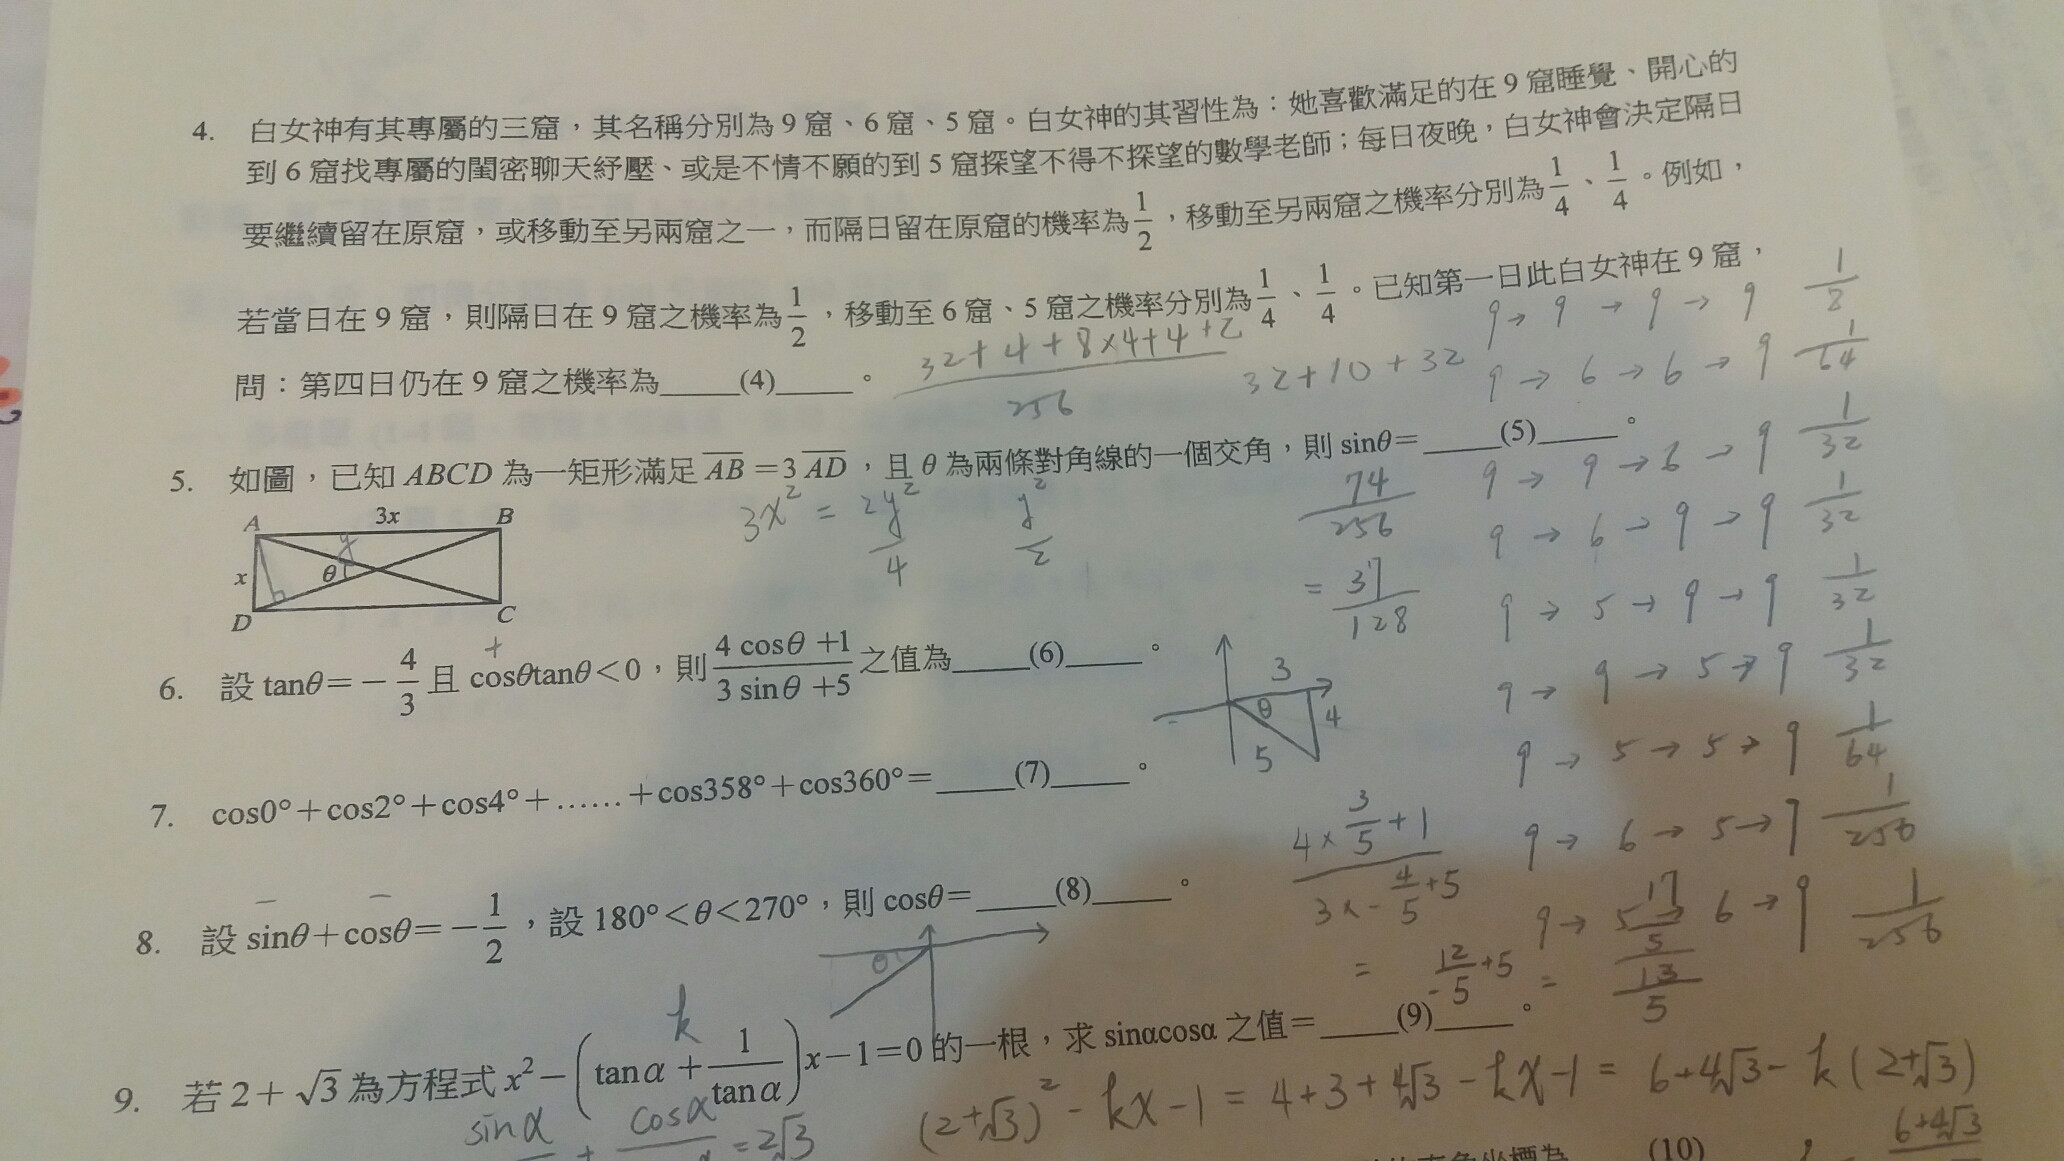 4. 白女神有其專屬的三窟，其名稱分別為 9 窟、6 窟、5 窟。白女神的其習性為：她喜歡滿足的在 9 窟睡覺、開心的
到 6 窟找專屬的閨密聊天紓壓、或是不情不願的到 5 窟探望不得不探望的數學老師；每日夜晚，白女神會決定隔日
要繼續留在原窟，或移動至另兩窟之一，而隔日留在原窟的機率為 1/2，移動至另兩窟之機率分別為 1/4、1/4。例如，
若當日在 9 窟，則隔日在 9 窟之機率為 1/2，移動至 6 窟、5 窟之機率分別為 1/4、1/4。已知第一日此白女神在 9 窟，
問：第四日仍在 9 窟之機率為____(4)____。
(32+4+8×4+4+2)/256
32+10+32
74/256
= 37/128
9→9→9→9 1/8
9→6→6→9 1/64
9→9→6→9 1/32
9→6→9→9 1/32
9→5→9→9 1/32
9→9→5→9 1/32
9→5→5→9 1/64
9→6→5→9 1/256
9→5→6→9 1/256
5. 如圖，已知 ABCD 為一矩形滿足 AB=3AD，且 θ 為兩條對角線的一個交角，則 sinθ=____(5)____。
3x² = 2y²/4 y²/2
A 3x B
y
x θ
D C
6. 設 tanθ=−4/3 且 cosθtanθ<0，則 (4 cosθ+1)/(3 sinθ+5) 之值為____(6)____。
+
3
θ 4
5
(4×3/5+1)/(3×-4/5+5)
= -12/5+5 = (17/5)/(13/5)
7. cos0°+cos2°+cos4°+……+cos358°+cos360°=____(7)____。
8. 設 sinθ+cosθ=−1/2，設 180°<θ<270°，則 cosθ=____(8)____。
− −
θ
k
9. 若 2+√3 為方程式 x²−(tanα+1/tanα)x−1=0 的一根，求 sinαcosα 之值=____(9)____。
(2+√3)²-kx-1 = 4+3+4√3-kx-1 = 6+4√3-k(2+√3)
sinα + cosα =2√3
6+4√3
(10)